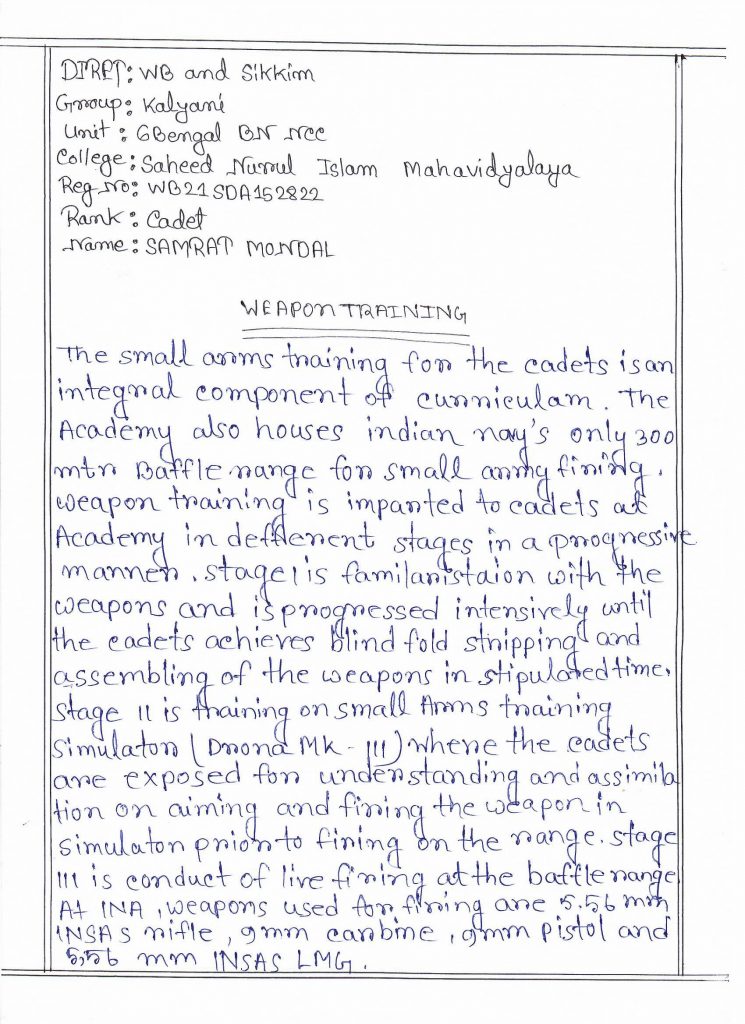 DIRET: WB and Sikkim
Group: Kalyani
Unit: 6Bengal BN NCC
College: Saheed Nurul Islam Mahavidyalaya
Reg No: WB21SDA152822
Rank: Cadet
Name: SAMRAT MONDAL
WEAPON TRAINING
The small arms training for the cadets is an
integral component of curriculam. The
Academy also houses indian nay's only 300
mtr Baffle range for small army firing.
weapon training is imparted to cadets at
Academy in defferent stages in a progressive
manner. stage 1 is familaristaion with the
weapons and is progressed intensively until
the cadets achieves blind fold stripping and
assembling of the weapons in stipulated time.
Stage 11 is training on small Arms training
Simulator (Drona Mk - 111) where the cadets
are exposed for understanding and assimila
tion on aiming and firing the weapon in
simulator prior to firing on the range. stage
111 is conduct of live firing at the baffle range
At INA, weapons used for firing are 5.56 mm
INSAS rifle, 9mm carbine, 9mm pistol and
5,56 mm INSAS LMG.